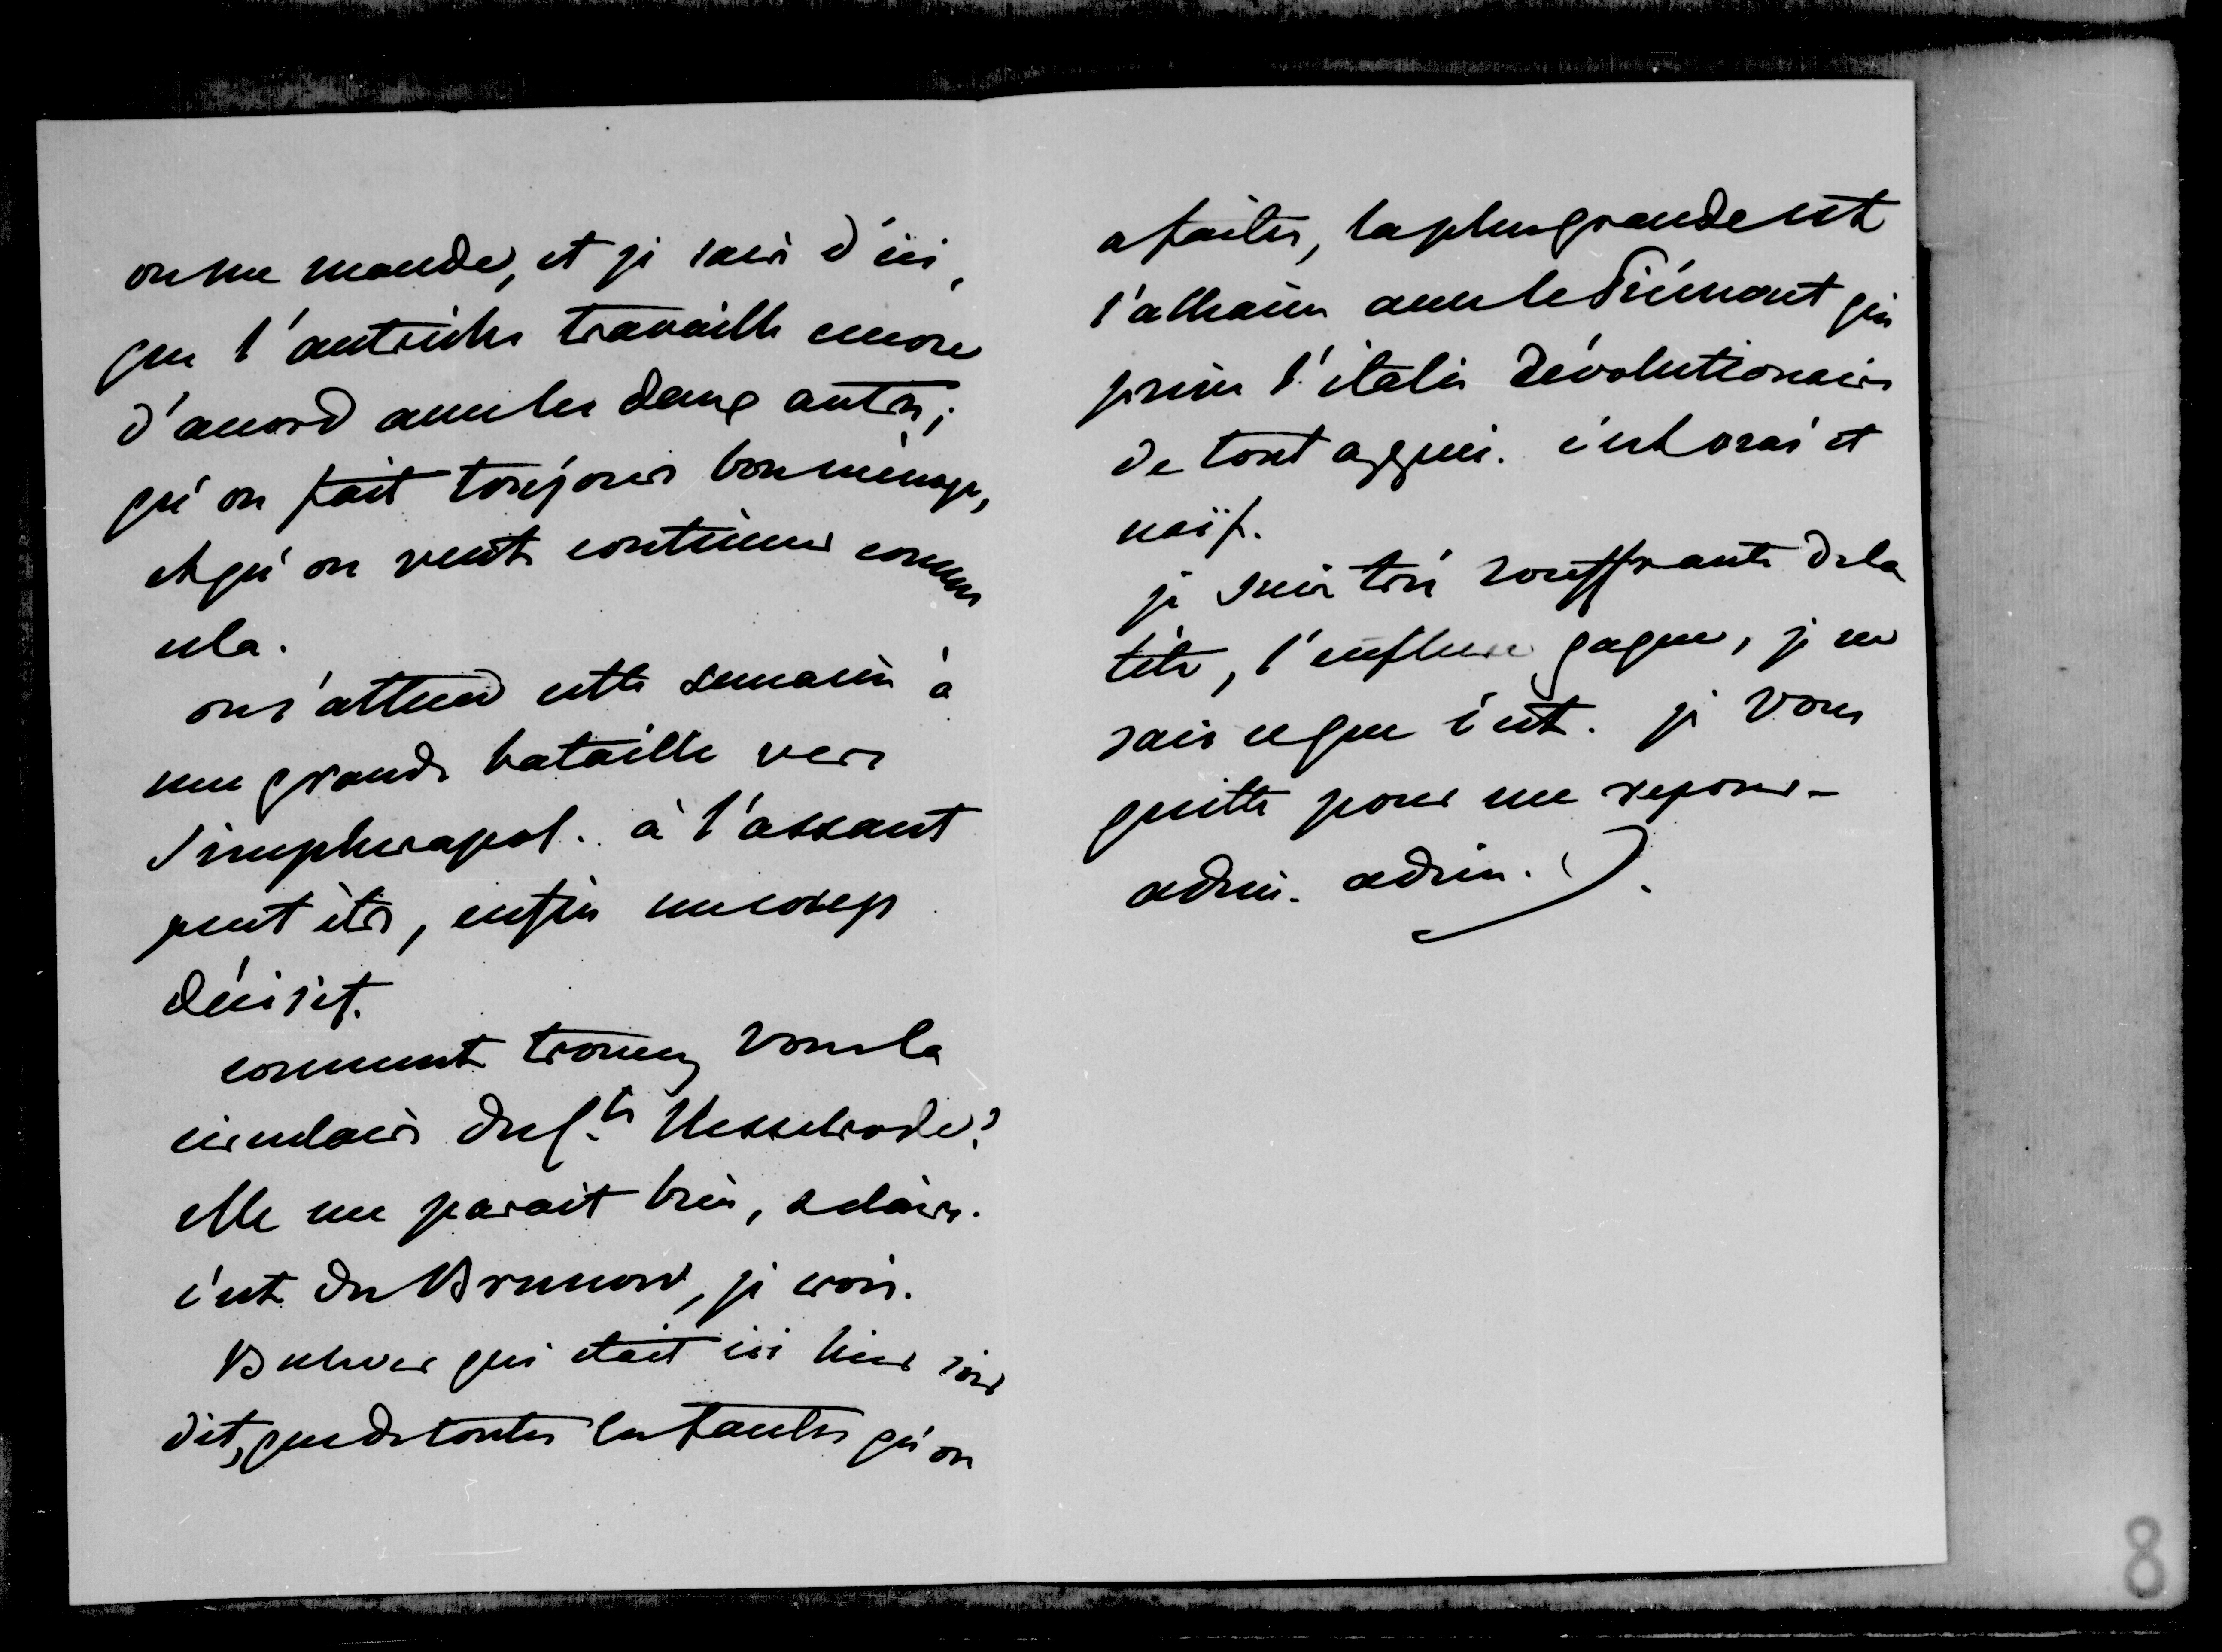 on me mande, et je sais d'ici,
que l'autriche travaille encore
d'accord avec les deux autres,
qu'on fait toujours bon ménage,
et qu'on veut continuer comme
cela.
on s'attend cette semaine à
une grande bataille vers
Simpherapol. à l'assaut
peut être, enfin un coup
décisif.
comment trouvez vous la
circulaire du Cte Nesselrode?
elle me parait bien, & claire.
c'est du Brunow, je crois.
Bulwer qui était ici hier soir
dit, que de toutes les fautes qu'on
a faites, la plus grande est
l'alliance avec le Piémont qui
prive l'italie révolutionaire
de tout appui. c'est vrai et
naïf.
je suis très souffrante de la
tête, l'enflure gagne, je ne
sais ce que c'est. je vous
quitte pour me reposer –
adieu. adieu.
8